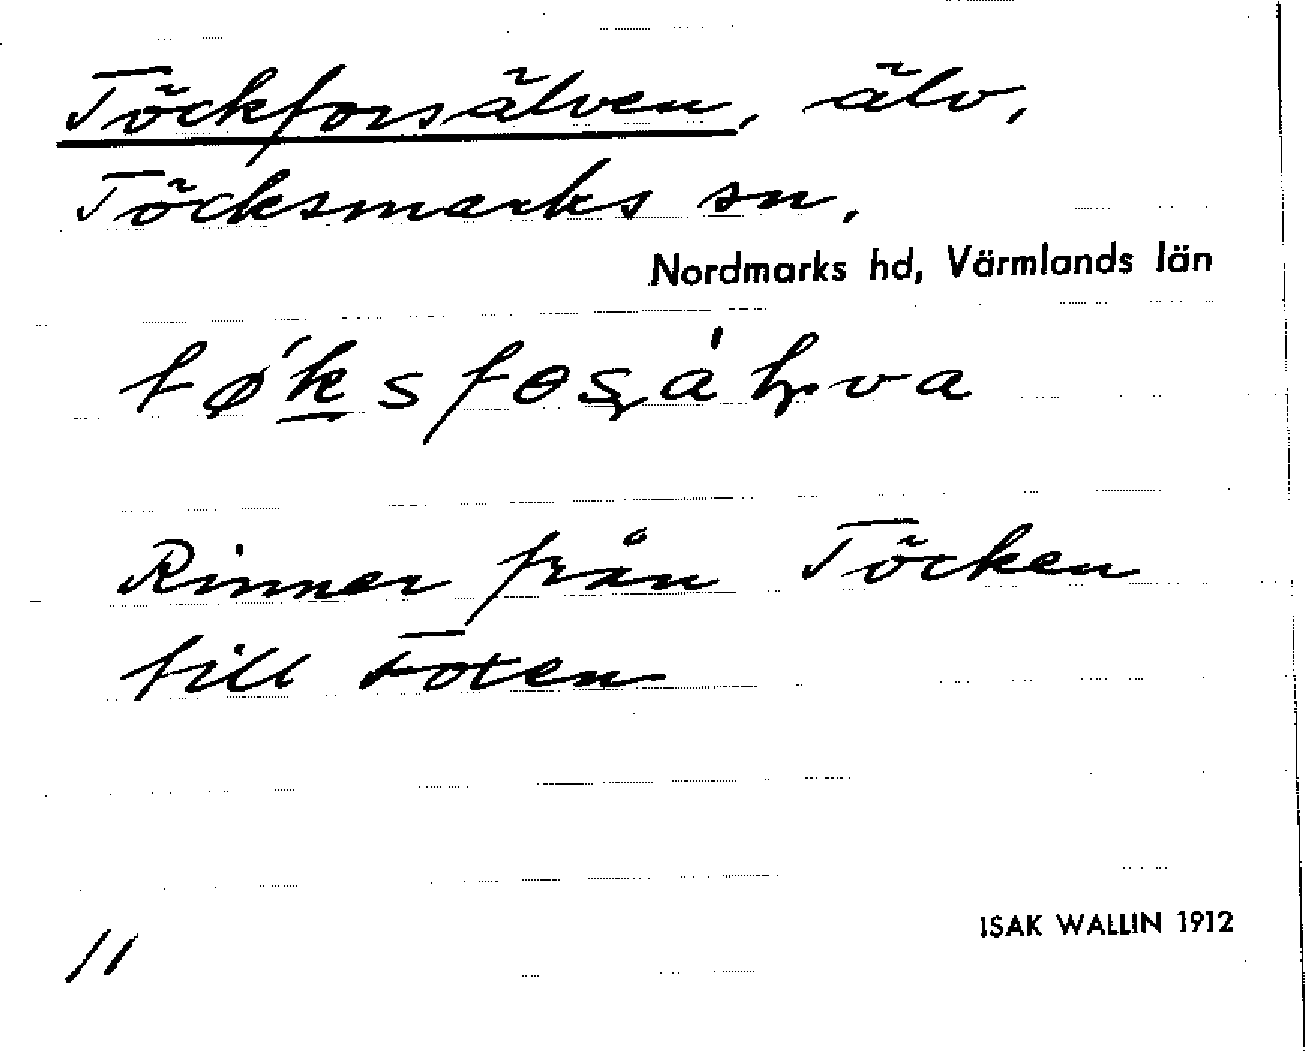 Töckforsälven, älv,
Töcksmarks sn,
Nordmarks hd, Värmlands län
Rinner från Töcken
till Foxen
ISAK WALLIN 1912
11